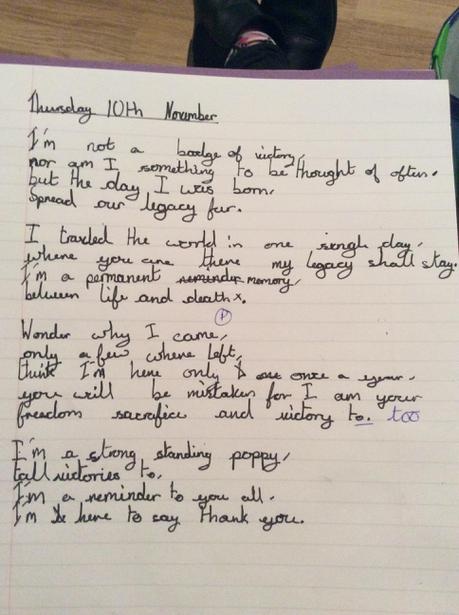 Thursday 10th November
I'm not a badge of victory,
nor am I something to be thought of often.
but the day I was born,
Spread our legacy far.
I traxled the world in one singh day,
where you are there my legacy shall stay.
I'm a permanent reminder memory,
between life and death x.
P
Wonder why I came,
only a few where left,
think I'm here only once a year.
you will be mistaken for I am your
freedom sacrafice and victory to. too
I'm a strong standing poppy,
tall victories to,
I'm a reminder to you all.
I'm here to say thank you.